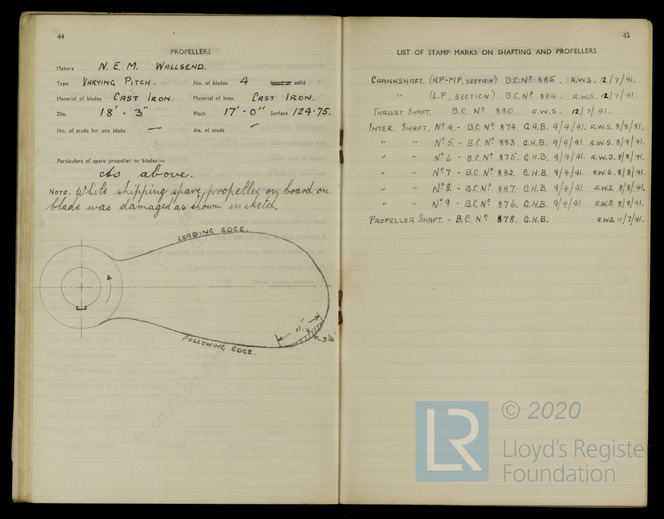 44
PROPELLERS
Makers N.E.M. WALLSEND.
Type VARYING PITCH. No. of blades 4 solid
Material of blades CAST IRON. Material of boss CAST IRON.
Dia. 18' - 3" Pitch 17' - 0" Surface 124.75.
No. of studs for one blade — dia. of studs —
Particulars of spare propeller or blades:—
As above.
NOTE. While shipping spare propeller on board one
blade was damaged as shown in sketch.
LEADING EDGE.
11"
3/4"
FOLLOWING EDGE.
45
LIST OF STAMP MARKS ON SHAFTING AND PROPELLERS
CRANKSHAFT. (H.P-M.P. SECTION) B.C. No 885. R.W.S. 12/7/41.
" (L.P. SECTION) B.C. No 884. R.W.S. 12/7/41.
THRUST SHAFT. B.C. No 880. R.W.S. 12/7/41.
INTER. SHAFT. No 4. - B.C. No 874. G.H.B. 9/4/41. R.W.S. 8/8/41.
" " No 5. - B.C. No 883. G.H.B. 9/4/41. R.W.S. 8/8/41.
" " No 6 - B.C. No 875. G.H.B. 9/4/41. R.W.S. 8/8/41.
" " No 7 - B.C. No 882. G.H.B. 9/4/41. R.W.S. 8/8/41.
" " No 8 - B.C. No 887. G.H.B. 9/4/41. R.W.S. 8/8/41.
" " No 9 - B.C. No 876. G.H.B. 9/4/41. R.W.S. 8/8/41.
PROPELLER SHAFT. - B.C. No 878. G.H.B. R.W.S. 11/7/41.
LR © 2020
Lloyd's Register
Foundation